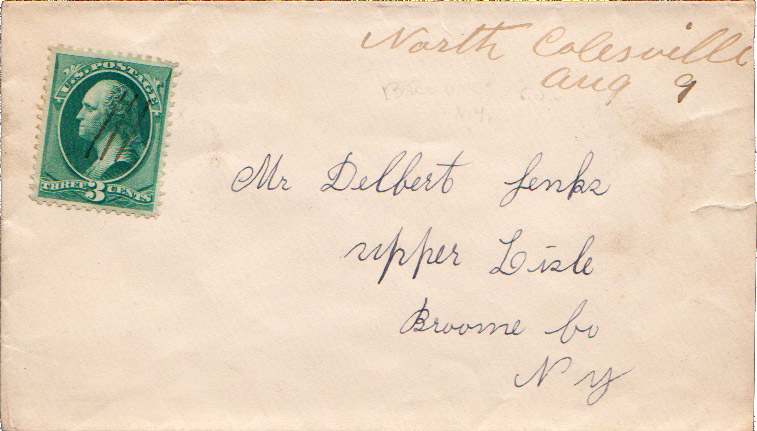 North Colesville
Aug 9
U.S. POSTAGE
THREE 3 CENTS
Mr Delbert Jenks
Upper Lisle
Broome Co
N Y